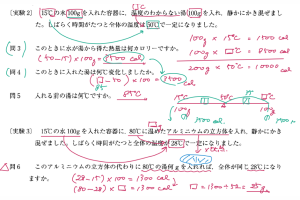 85℃
〔実験2〕 15℃の水100gを入れた容器に、温度のわからない湯100gを入れ、静かにかき混ぜまし
た。しばらく時間がたつと全体の温度は50℃で一定になりました。
100g × 15℃ = 1500 cal
100g × □℃ = 8500 cal
200g × 50℃ = 10000 cal
問3 このときに水が湯から得た熱量は何カロリーですか。
(50-15) × 100g = 3500 cal
問4 このときに入れた湯は何℃変化しましたか。
(□-50) × 100 = 3500 cal
問5 入れる前の湯は何℃ですか。
15℃ 50℃
100g 100g
〔実験3〕 15℃の水100gを入れた容器に、80℃に温めたアルミニウムの立方体を入れ、静かにかき
混ぜました。しばらく時間がたつと全体の温度が28℃で一定になりました。
問6 このアルミニウムの立方体の代わりに80℃の湯何gを入れれば、全体が同じ28℃になり
ますか。
(28-15) × 100 = 1300 cal
(80-28) × □ = 1300 cal
□ = 1300÷52 = 25g